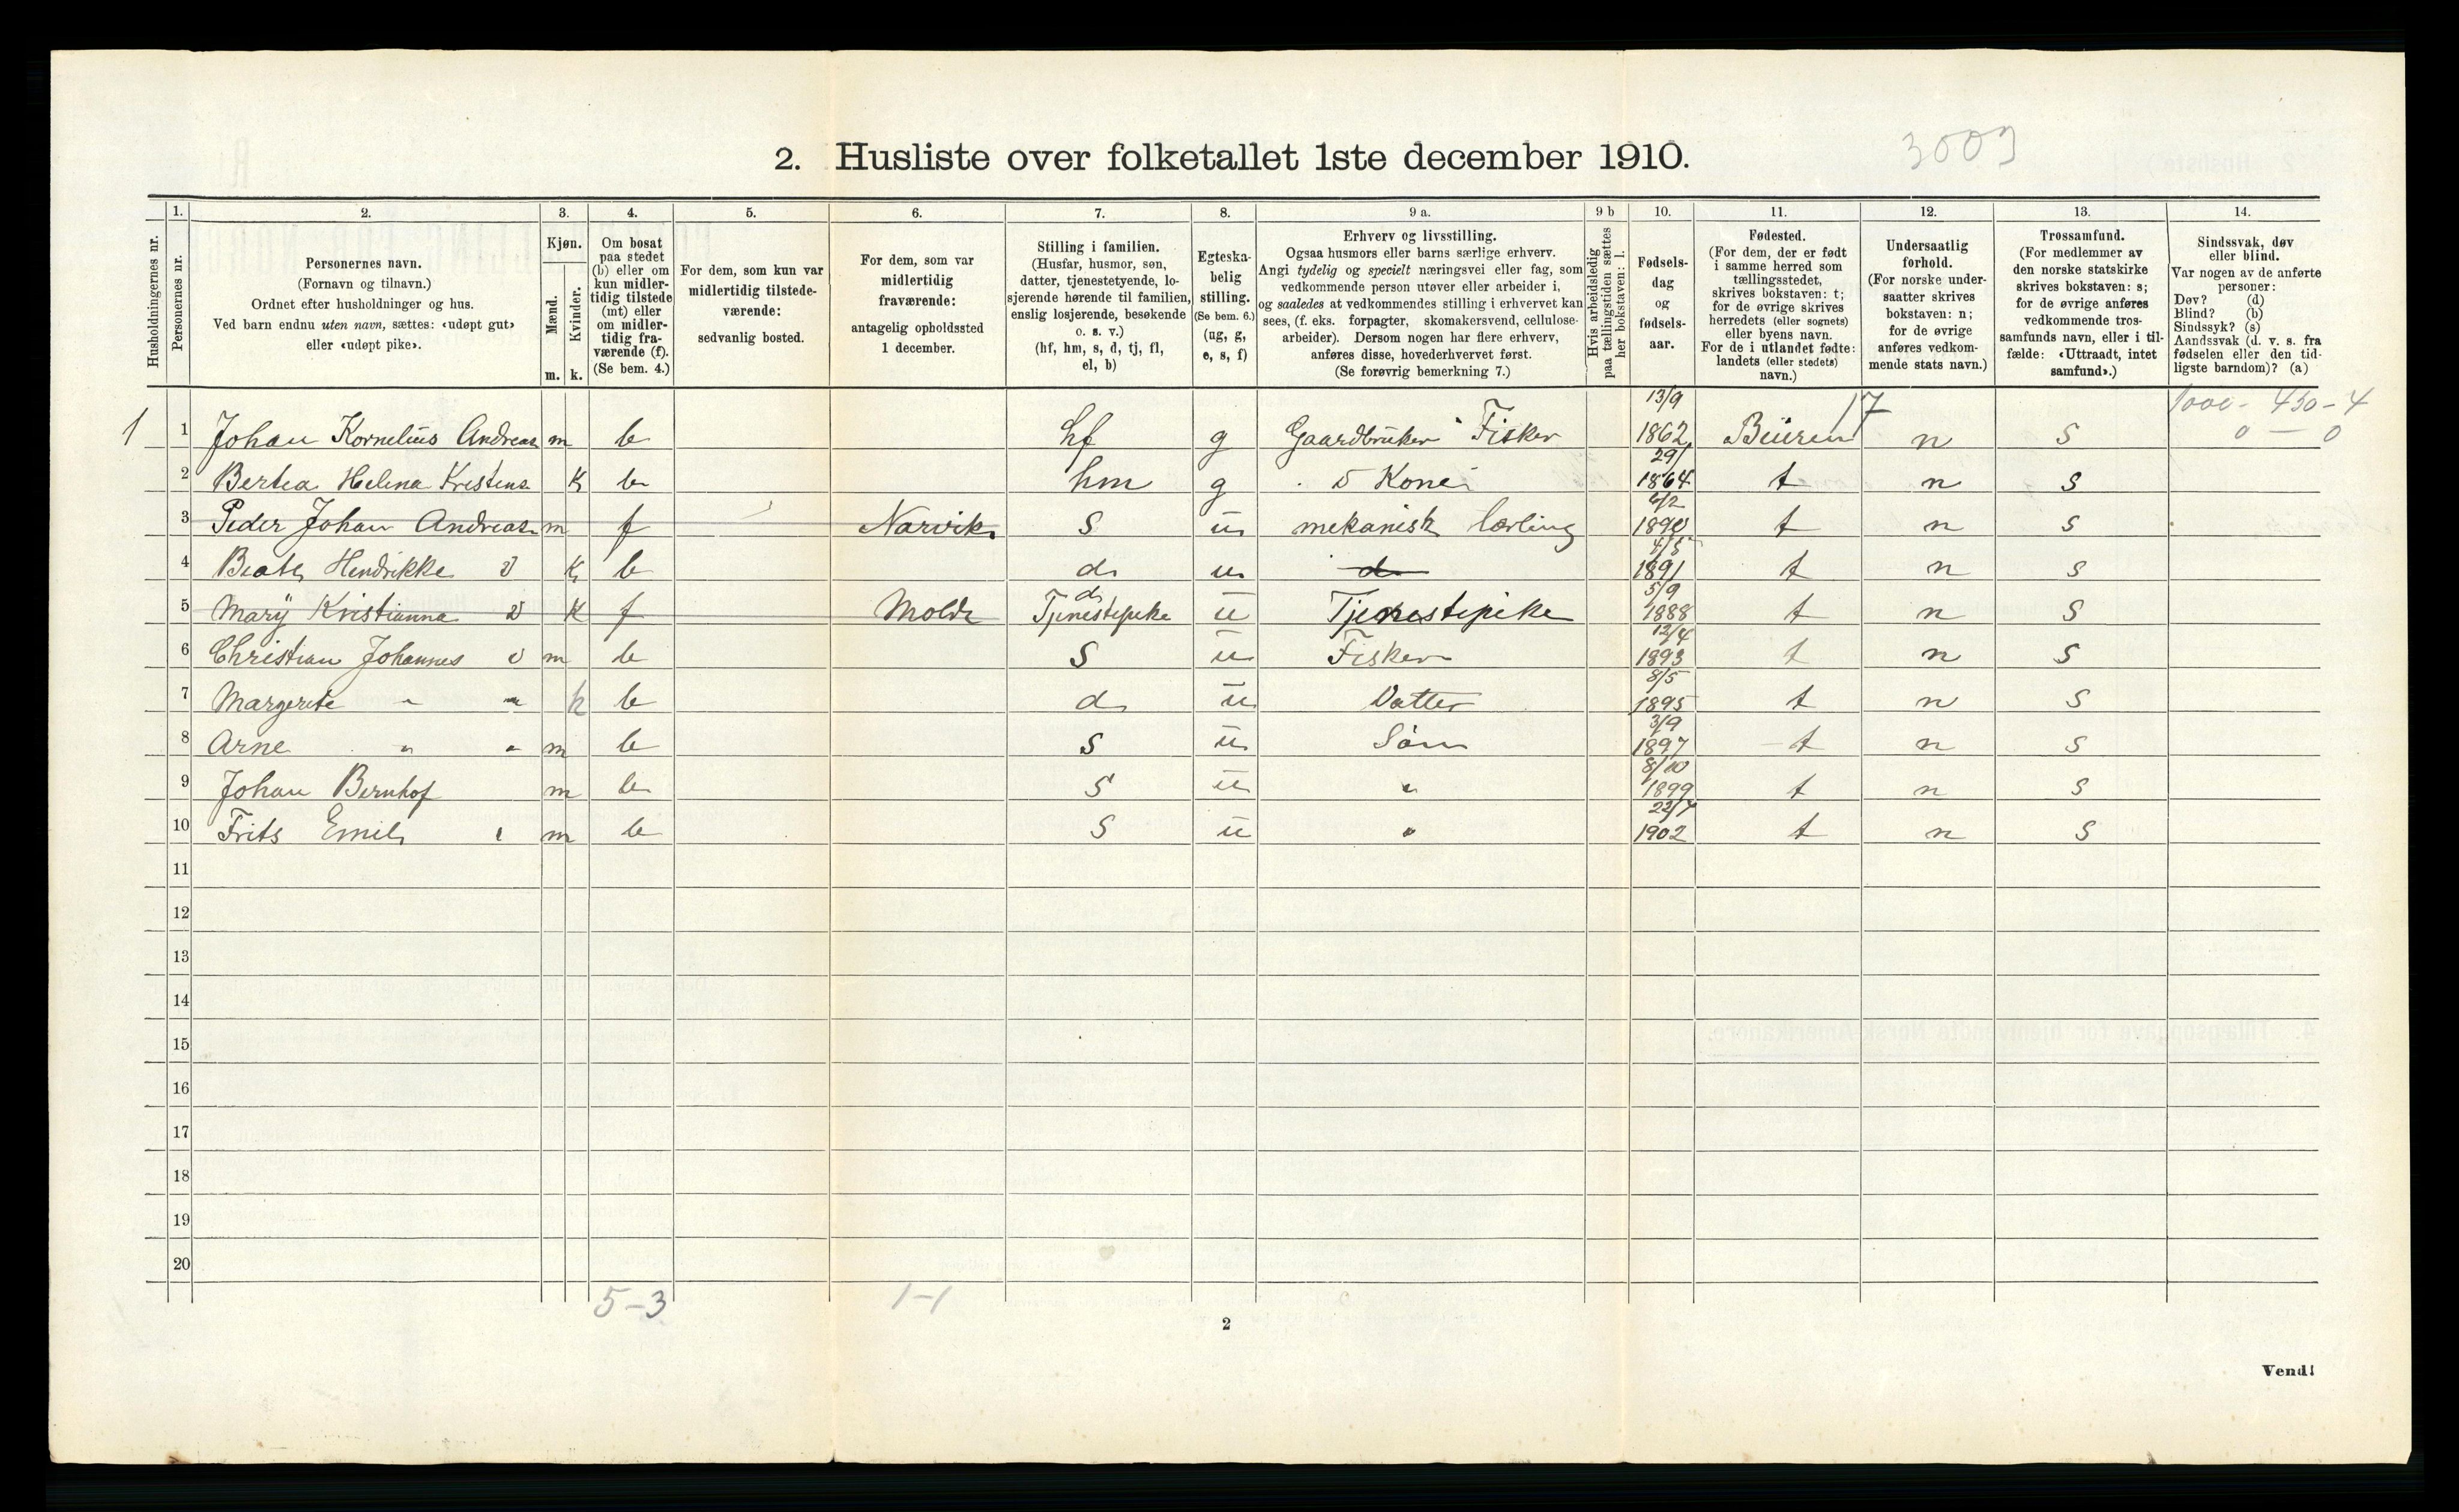 2. Husliste over folketallet 1ste december 1910.
3003
Husholdningernes nr.
1.
Personernes nr.
2.
Personernes navn.
(Fornavn og tilnavn.)
Ordnet efter husholdninger og hus.
Ved barn endnu uten navn, sættes: «udøpt gut»
eller «udøpt pike».
3.
Kjøn.
Mænd.
Kvinder.
m. k.
4.
Om bosat
paa stedet
(b) eller om
kun midler-
tidig tilstede
(mt) eller
om midler-
tidig fra-
værende (f).
(Se bem. 4.)
5.
For dem, som kun var
midlertidig tilstede-
værende:
sedvanlig bosted.
6.
For dem, som var
midlertidig
fraværende:
antagelig opholdssted
1 december.
7.
Stilling i familien.
(Husfar, husmor, søn,
datter, tjenestetyende, lo-
sjerende hørende til familien,
enslig losjerende, besøkende
o. s. v.)
(hf, hm, s, d, tj, fl,
el, b)
8.
Egteska-
belig
stilling.
(Se bem. 6.)
(ug, g,
e, s, f)
9 a.
Erhverv og livsstilling.
Ogsaa husmors eller barns særlige erhverv.
Angi tydelig og specielt næringsvei eller fag, som
vedkommende person utøver eller arbeider i,
og saaledes at vedkommendes stilling i erhvervet kan
sees, (f. eks. forpagter, skomakersvend, cellulose-
arbeider). Dersom nogen har flere erhverv,
anføres disse, hovederhvervet først.
(Se forøvrig bemerkning 7.)
9 b
Hvis arbeidsledig
paa tællingstiden sættes
her bokstaven: l.
10.
Fødsels-
dag
og
fødsels-
aar.
11.
Fødested.
(For dem, der er født
i samme herred som
tællingsstedet,
skrives bokstaven: t;
for de øvrige skrives
herredets (eller sognets)
eller byens navn.
For de i utlandet fødte:
landets (eller stedets)
navn.)
12.
Undersaatlig
forhold.
(For norske under-
saatter skrives
bokstaven: n;
for de øvrige
anføres vedkom-
mende stats navn.)
13.
Trossamfund.
(For medlemmer av
den norske statskirke
skrives bokstaven: s;
for de øvrige anføres
vedkommende tros-
samfunds navn, eller i til-
fælde: «Uttraadt, intet
samfund».)
14.
Sindssvak, døv
eller blind.
Var nogen av de anførte
personer:
Døv? (d)
Blind? (b)
Sindssyk? (s)
Aandssvak (d. v. s. fra
fødselen eller den tid-
ligste barndom)? (a)
1000 - 450 - 4
0 — 0
1 1 Johan Kornelius Andreas m b hf g Gaardbruker Fisker 13/9 1862 17 n s
2 Bertea Helena Kristens k b hm g Kone 29/ 1864 t n s
3 Peder Johan Andreas m f Narvik s u mekanisk lærling 6/2 1890 t n s
4 Beate Hendrikke k b d u d 4/8 1891 t n s
5 Mary Kristianna k f Molde d Tjenestepike u Tjenestepike 5/9 1888 t n s
6 Christian Johannes m b s u Fisker 12/4 1893 t n s
7 Margrete " " k b d u Datter 8/5 1895 t n s
8 Arne " " m b s u Søn 3/9 1897 t n s
9 Johan Bernhof m b s u " 8/10 1899 t n s
10 Frits Emil m b s u " 22/7 1902 t n s
11
12
13
14
15
16
17
18
19
20
5-3 1-1
2
Vend!